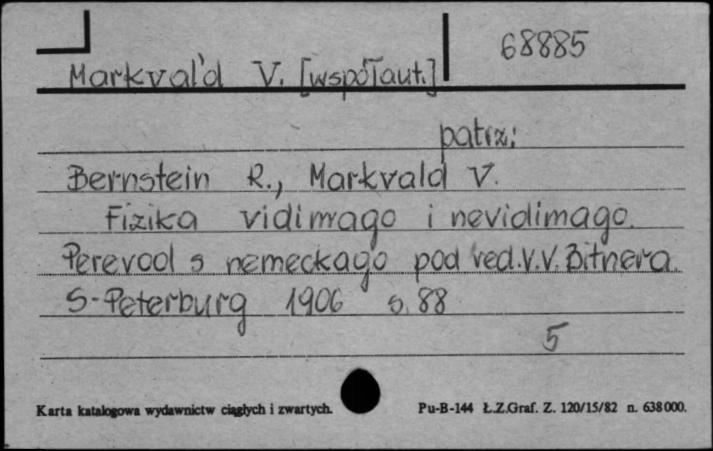 68885
Markval'd V. [współaut.]
patrz:
Bernstein R., Markvald V.
Fizika vidimago i nevidimago.
Perevod s nemeckago pod red. V.V. Bitnera.
S-Peterburg 1906 s. 88
5
Karta katalogowa wydawnictw ciągłych i zwartych. Pu-B-144 Ł.Z.Graf. Z. 120/15/82 n. 638000.